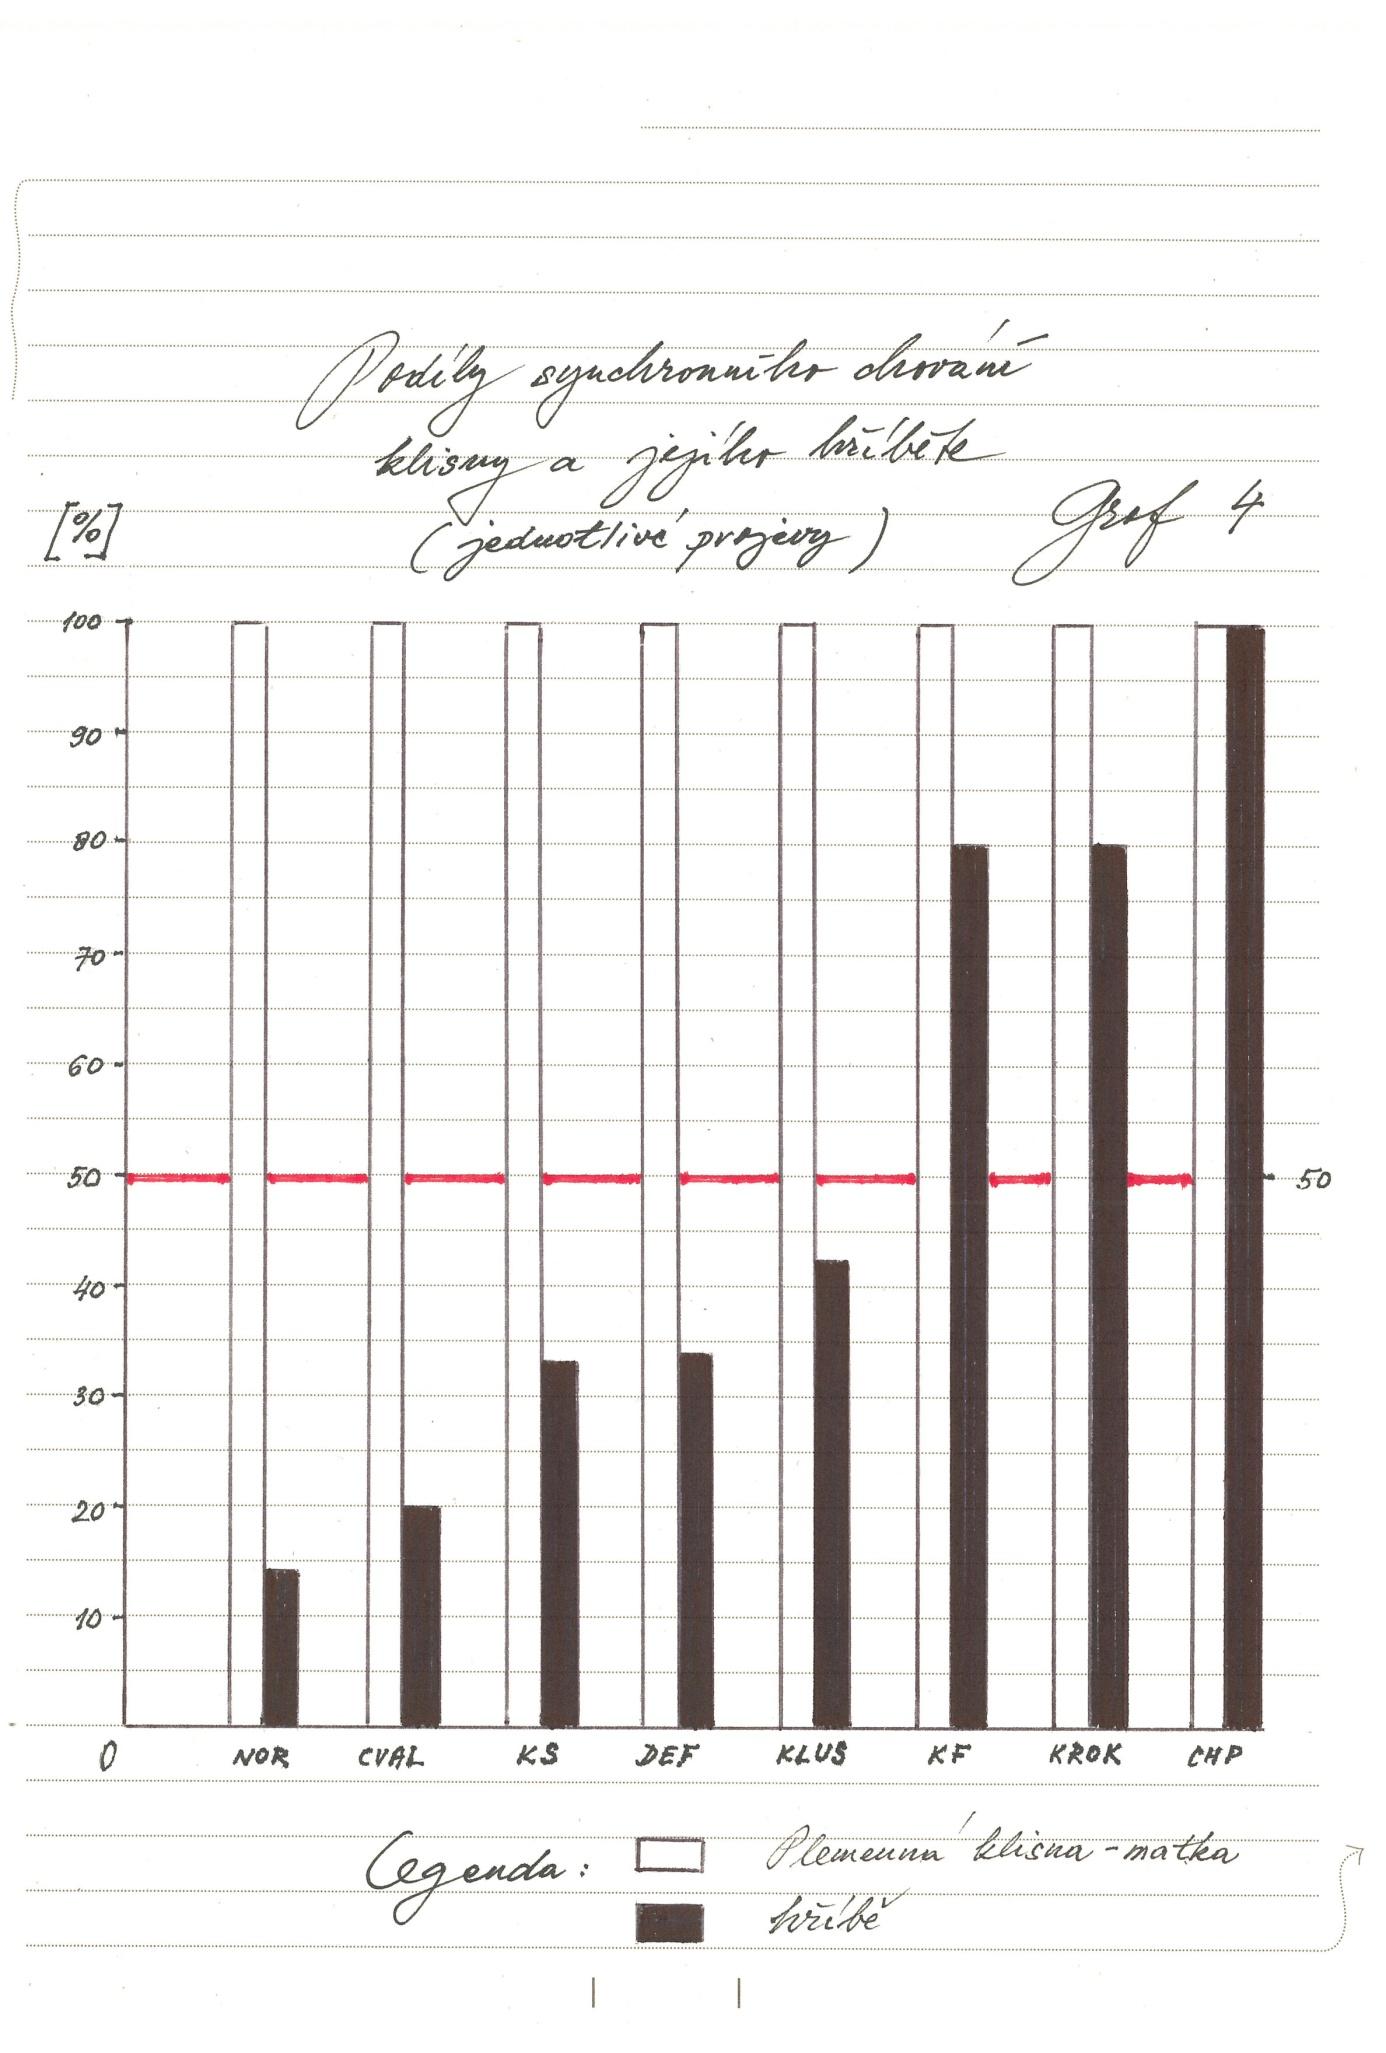 Podíly synchronního chování
klisny a jejího hříběte
(jednotlivé projevy)
Graf 4
[%]
100
90
80
70
60
50
50
40
30
20
10
0 NOR CVAL KS DEF KLUS KF KROK CHP
Legenda: Plemenná klisna - matka
hříbě